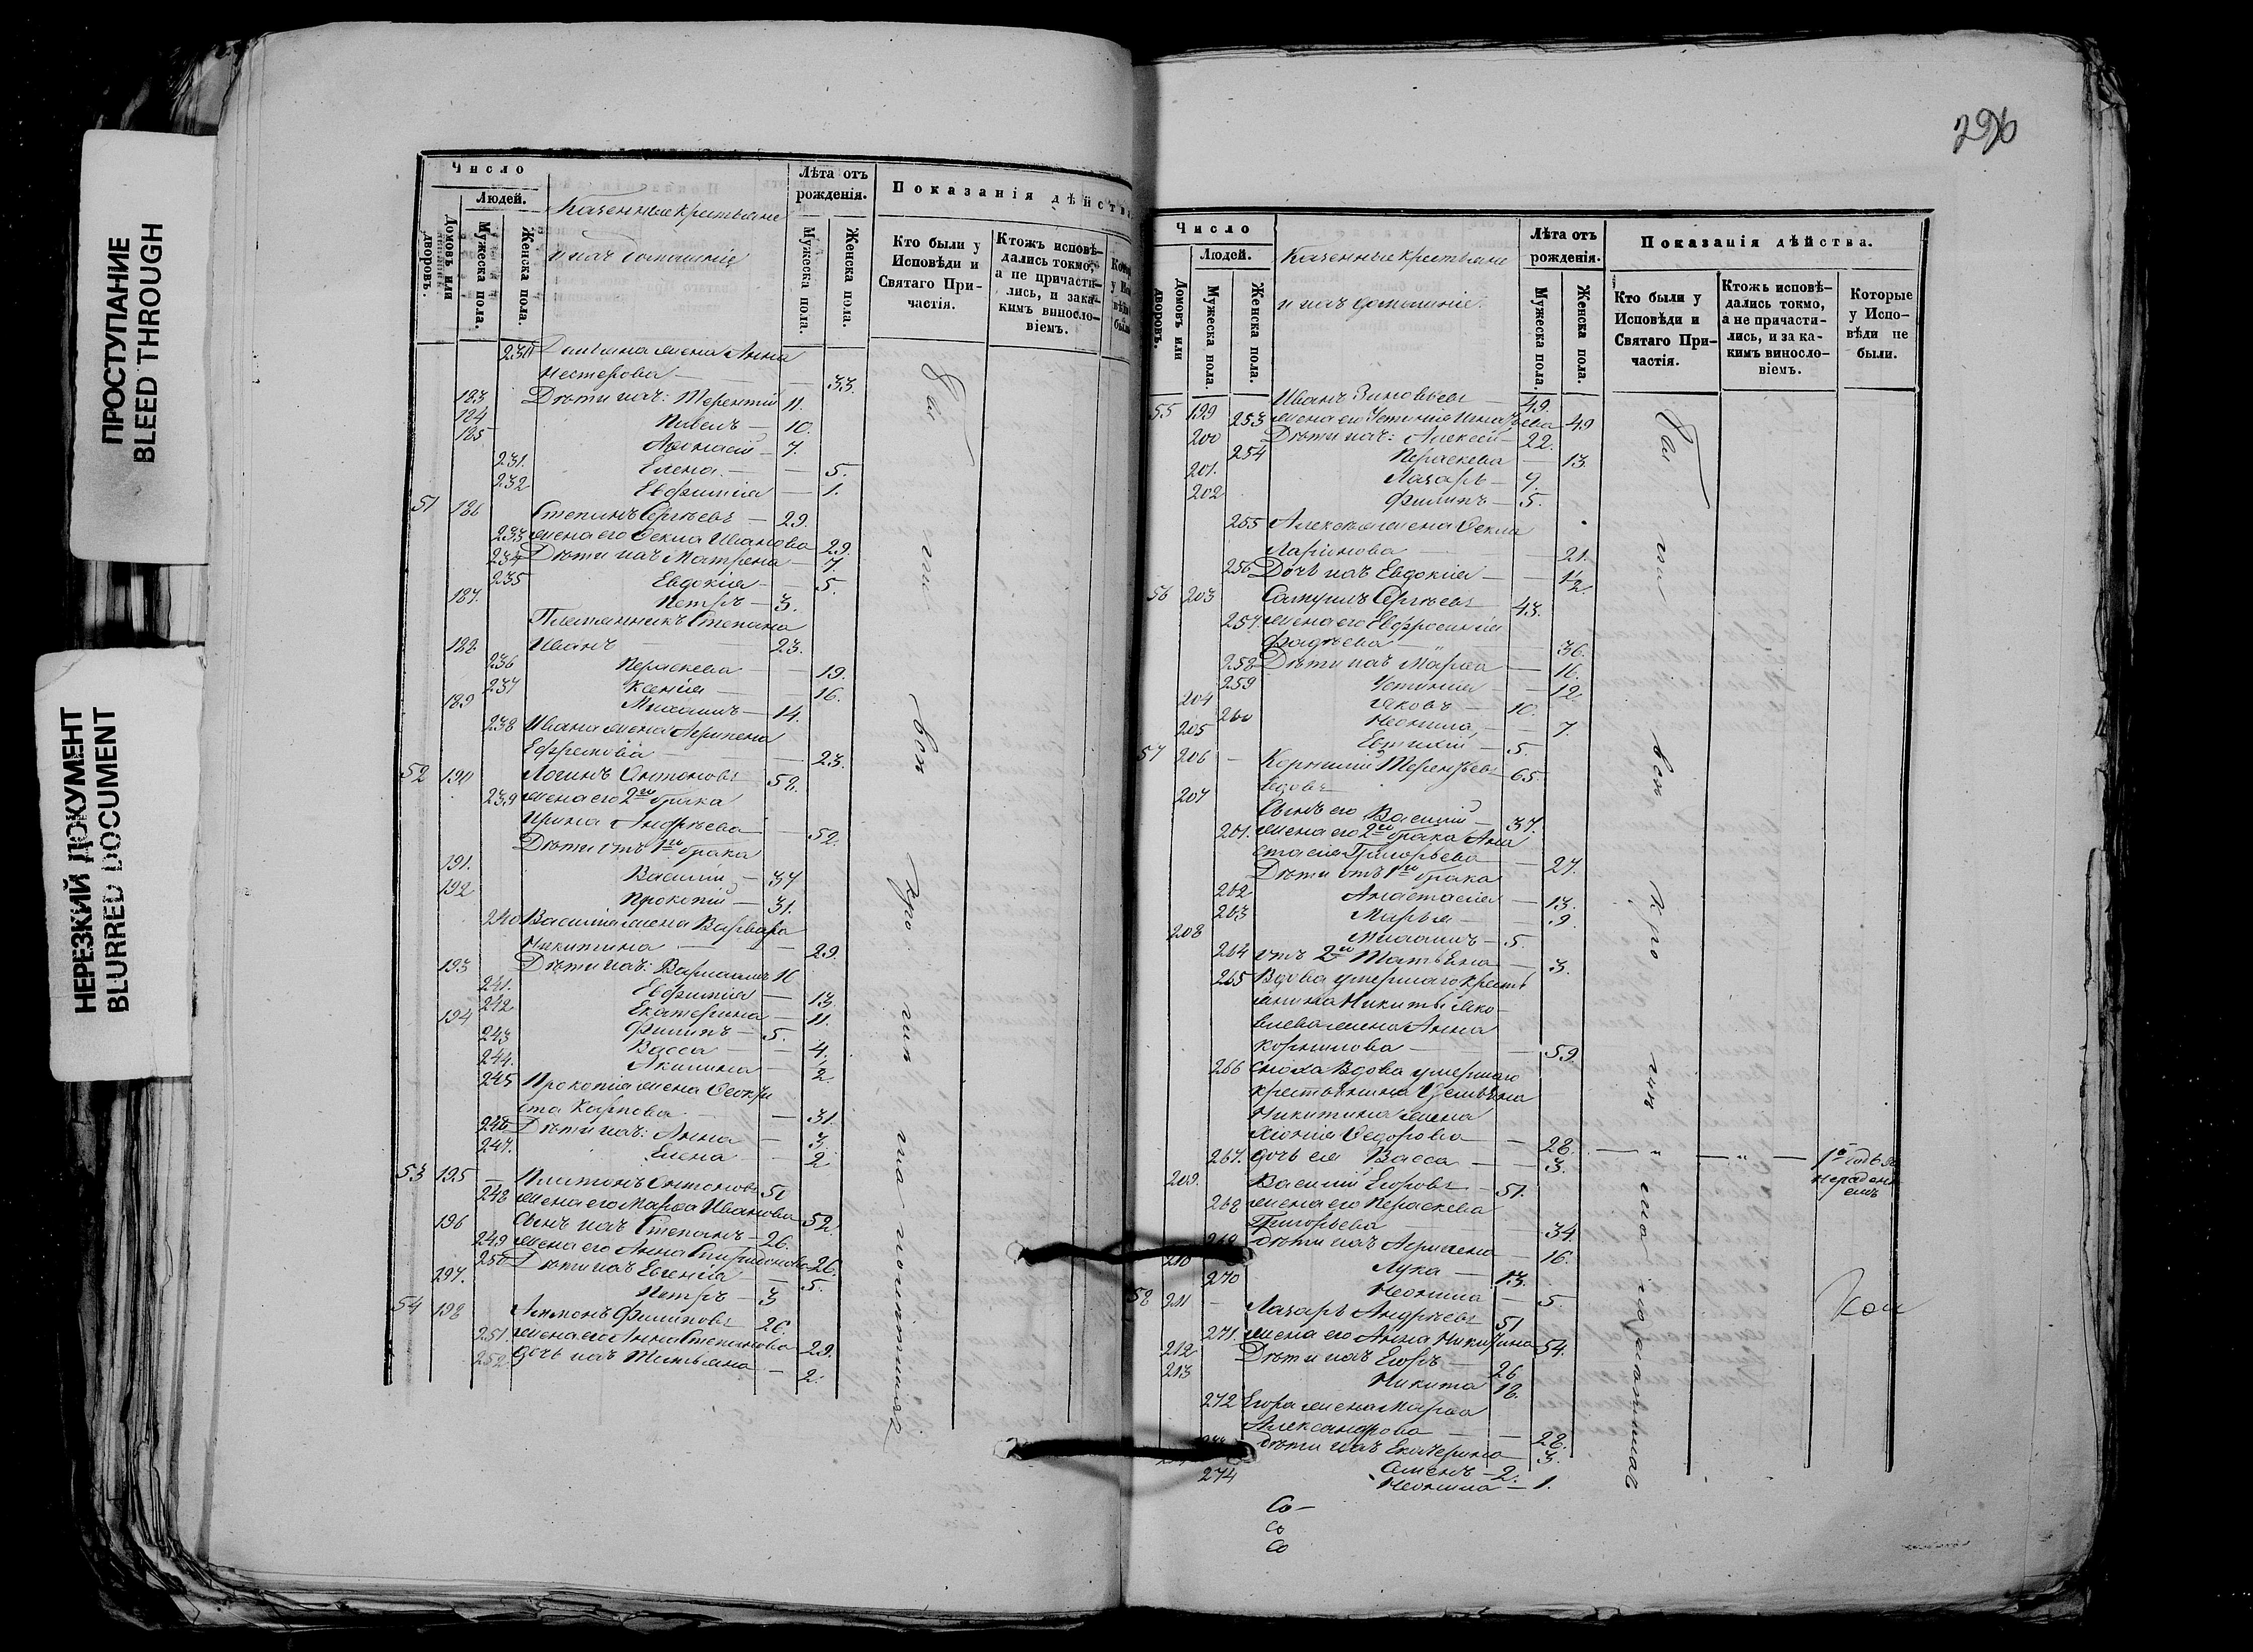 ПРОСТУПАНИЕ
BLEED THROUGH
НЕРЕЗКИЙ ДОКУМЕНТ
BLURRED DOCUMENT
Число
Людей.
Домовъ или дворовъ.
Мужеска пола.
Женска пола.
Казенные крестьяне
и ихъ домашніе
Лѣта отъ рожденія.
Мужеска пола.
Женска пола.
Показанія дѣйств
Кто были у Исповѣди и Святаго Причастія.
Ктожъ исповѣдались токмо, а не причастились, и за какимъ винословіемъ.
230 жена Анна
Нестерова — 33.
183 Дѣти ихъ: Терентій 11.
184 Павелъ — 10.
185 Афанасій — 7.
231. Елена — 5.
232 Евфимія — 1.
51 186 Степанъ Сергѣевъ — 29.
233 жена его Ѳекла Иванова 29.
234 Дѣти ихъ Матрена — 7
235 Евдокія — 5.
187. Петръ — 3.
Племянникъ Степана
188 Иванъ — 23.
236 Пераскева — 19.
237 Ксенія — 16.
189 Михаилъ — 14.
238 Ивана жена Агрипена
Ефремова — 23.
52 190 Логинъ Антоновъ 58.
239 жена его 2го брака
Ирина Андрѣева 52.
Дѣти отъ 1го брака
191. Василій — 37
192 Прокопій — 31.
240 Василія жена Варвара
Никитина — 29.
193 Дѣти ихъ: Варлаамъ 16
241. Евфимія — 13.
242 Екатерина — 11.
194 Филипъ — 5.
243 Васса — 4.
244. Акилина — 2.
245 Прокопія жена Ѳеокти
ста Карпова — 31.
246 Дѣти ихъ: Анна — 3.
247. Елена — 2
53 195 — Платонъ Антоновъ 50
248 жена его Марѳа Иванова 52.
196 Сынъ ихъ Степанъ — 26.
249 жена его Анна Спиридонова 26.
250 Дѣти ихъ Евгенія — 5.
297. Петръ — 3
54 198 Филиповъ 26.
251. жена его Анна Степанова 29.
252. дочь ихъ Татьяна — 2.
296
Число
Людей.
Домовъ или дворовъ.
Мужеска пола.
Женска пола.
Казенные крестьяне
и ихъ домашніе.
Лѣта отъ рожденія.
Мужеска пола.
Женска пола.
Показанія дѣйства.
Кто были у Исповѣди и Святаго Причастія.
Ктожъ исповѣдались токмо, а не причастились, и за какимъ винословіемъ.
Которые у Исповѣди не были.
55 199 Иванъ Зиновьевъ — 49.
253 жена его Устинія Игнатьева 49
200 Дѣти ихъ: Алексѣй — 22.
254 Пераскева — 13.
201. Лазарь — 9.
202 Филипъ — 5.
255 Алексѣя жена Ѳекла
Ларіонова — 21.
256 Дочь ихъ Евдокія — 1/2.
56 203 Самуилъ Сергѣевъ 43.
257. жена его Евфросинія
Фадѣева — " — 36.
258 Дѣти ихъ Марѳа — 16.
259 Устинія — 12
204 Яковъ — 10.
260 Неонила — 7.
205 Евтихій — 5.
57 206 — Корнилій Терентьевъ 65.
вдовъ
207 Сынъ его Василій — 37.
261. жена его 2го брака Ана
стасія Григорьева — 27.
Дѣти отъ 1го брака
262 Анастасія — 13.
263 Марья — 9.
208 Михаилъ — 5.
264 отъ 2го Татьяна — 3.
265 Вдова умершаго кресть
янина Никиты Яко-
влева жена Анна
Корнилова — 59.
266 сноха вдова умершаго
крестьянина
Никитина жена
Хіонія Ѳедорова — 28.
267. дочь ея Васса — 3.
209. Василій Егоровъ — 51.
268 жена его Пераскева
Григорьева 34.
269 дѣти ихъ Агрипена — 16.
210 Лука — 13.
270 Неонила — 5.
58 211 — Лазарь Андрѣевъ 51
271. жена его Анна Никитина 54.
212 Дѣти ихъ Егоръ — 26
213 Никита 18.
272 Егора жена Марѳа
Александрова — 28.
дѣти ихъ Екатерина 3.
Семенъ — 2.
274 Неонила — 1.
Со —
Со
Со